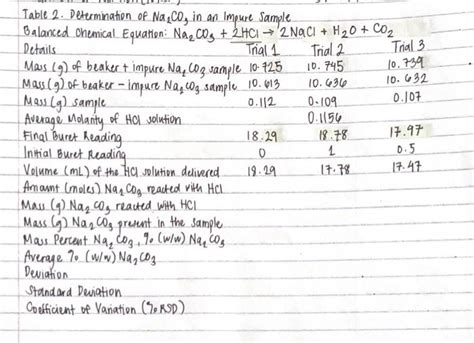 Table 2. Determination of Na₂CO₃ in an Impure Sample
Balanced Chemical Equation: Na₂CO₃ + 2HCl → 2NaCl + H₂O + CO₂
Details Trial 1 Trial 2 Trial 3
Mass (g) of beaker + impure Na₂CO₃ sample 10.725 10.745 10.739
Mass (g) of beaker - impure Na₂CO₃ sample 10.613 10.636 10.632
Mass (g) sample 0.112 0.109 0.107
Average Molarity of HCl solution 0.1156
Final Buret Reading 18.29 18.78 17.97
Initial Buret Reading 0 1 0.5
Volume (mL) of the HCl solution delivered 18.29 17.78 17.47
Amount (moles) Na₂CO₃ reacted with HCl
Mass (g) Na₂CO₃ reacted with HCl
Mass (g) Na₂CO₃ present in the sample
Mass Percent Na₂CO₃, % (w/w) Na₂CO₃
Average % (w/w) Na₂CO₃
Deviation
Standard Deviation
Coefficient of Variation (% RSD)